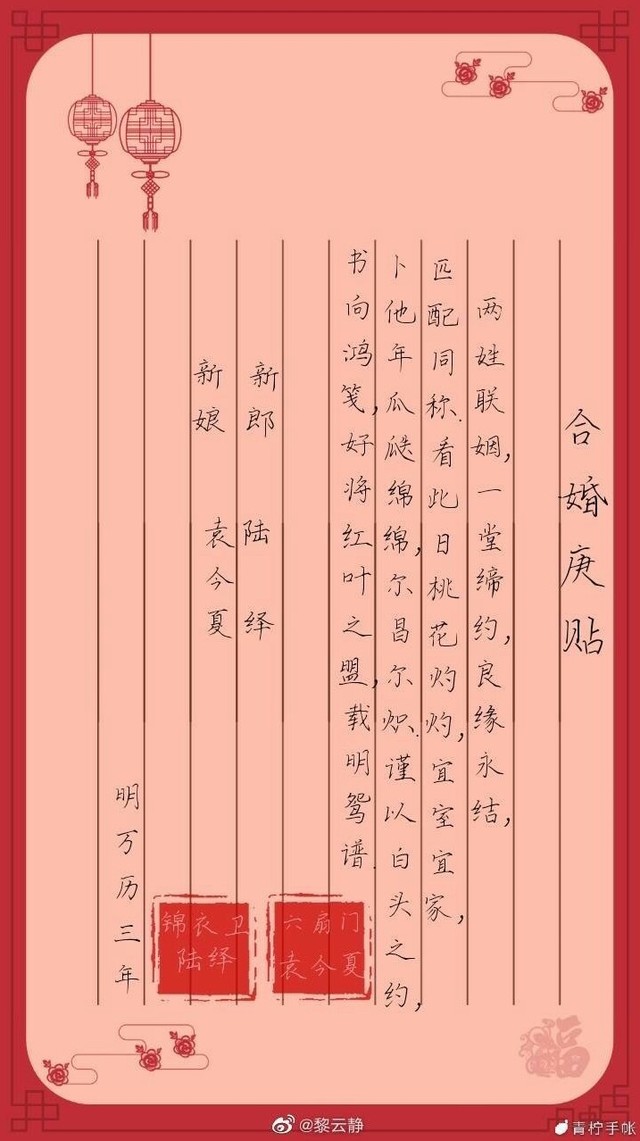 合婚庚贴
两姓联姻，一堂缔约，良缘永结，
匹配同称.看此日桃花灼灼，宜室宜家，
卜他年瓜瓞绵绵，尔昌尔炽.谨以白头之约，
书向鸿笺，好将红叶之盟，载明鸳谱.
新郎 陆绎
新娘 袁今夏
六扇门
袁今夏
锦衣卫
陆绎
明万历三年
福
@黎云静
青柠手帐